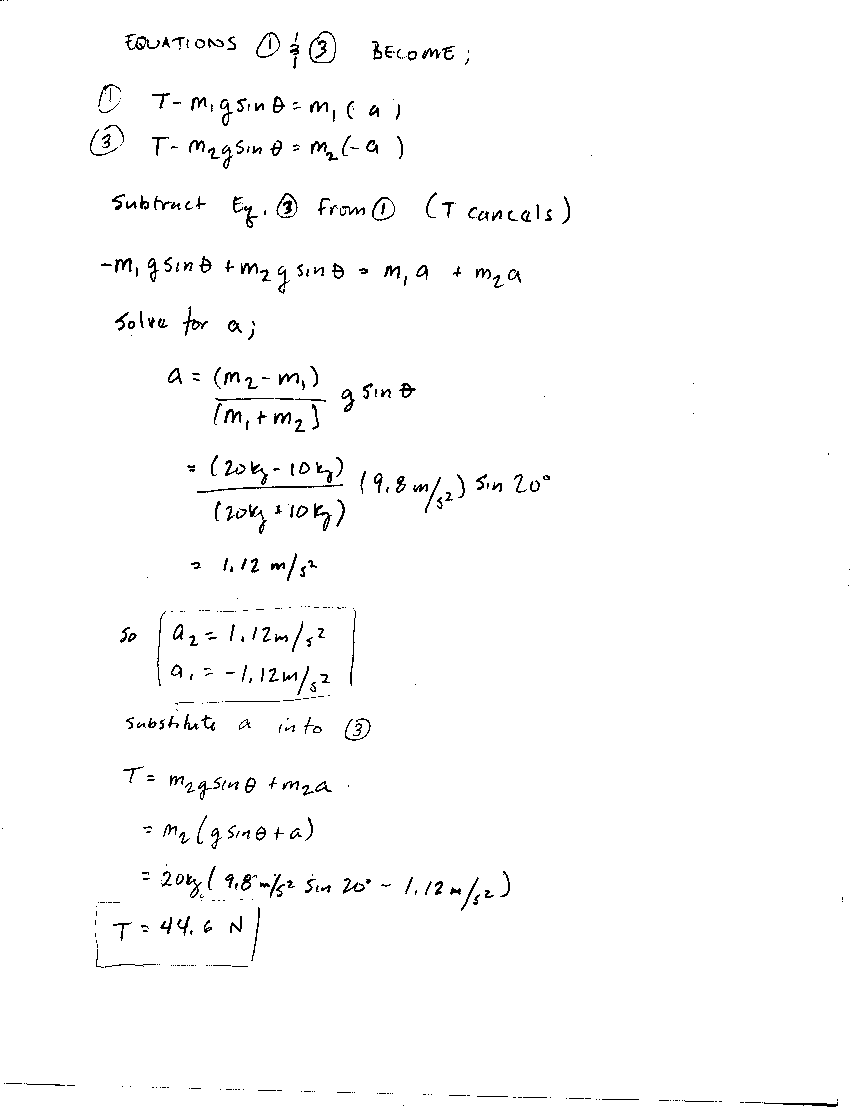 EQUATIONS ① & ③ BECOME;
① T - m₁g sin θ = m₁ ( a )
③ T - m₂g sin θ = m₂ (-a )
Subtract Eq. ③ From ① (T cancels)
-m₁ g sin θ + m₂ g sin θ = m₁ a + m₂ a
Solve for a;
a = (m₂ - m₁)
(m₁ + m₂) g sin θ
= (20kg - 10kg)
(20kg + 10kg) (9.8 m/s²) sin 20°
= 1.12 m/s²
So a₂ = 1.12 m/s²
a₁ = -1.12 m/s²
Substitute a into ③
T = m₂g sin θ + m₂a
= m₂ (g sin θ + a)
= 20kg ( 9.8 m/s² sin 20° - 1.12 m/s² )
T = 44.6 N